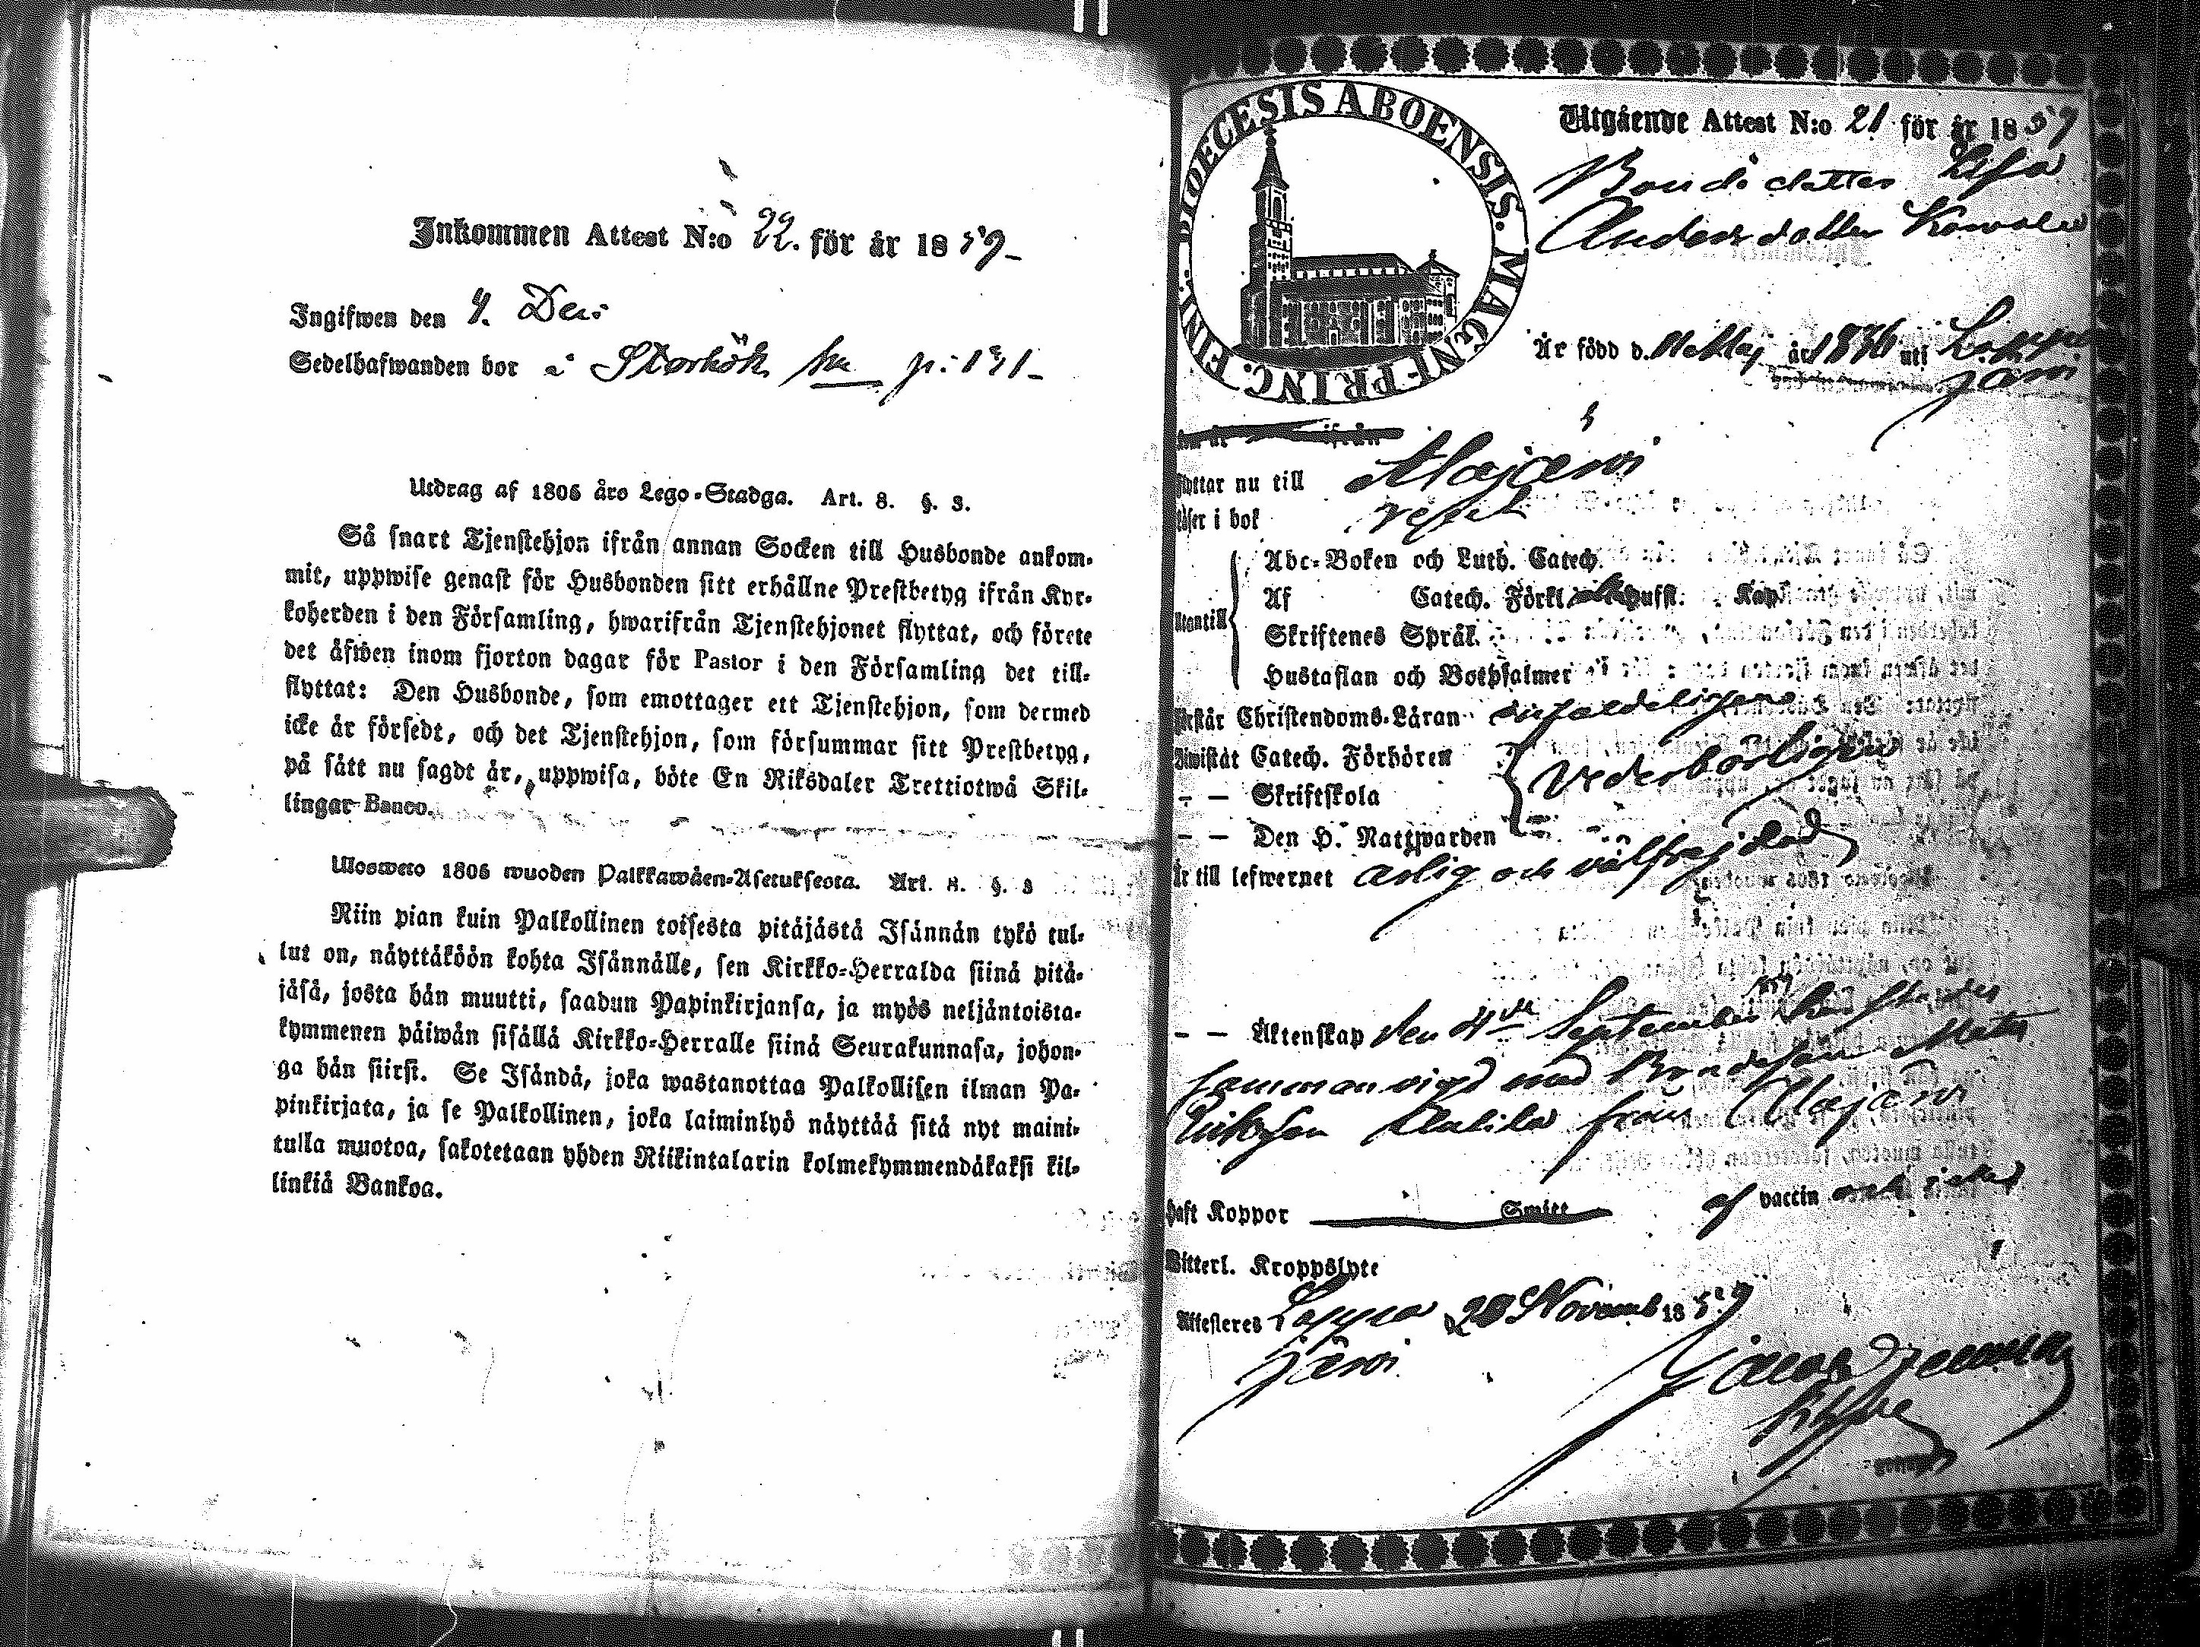 Inkommen Attest N:o 22. för år 1859
Ingifwen den 4. Dec:
Sedelhafwanden bor i p: 131
Utdrag af 1805 års Lego-Stadga. Art. 8. §. 3.
Så snart Tjenstehjon ifrån annan Socken till Husbonde ankom-
mit, uppwise genast för Husbonden sitt erhållne Prestbetyg ifrån Kyr-
koherden i den Församling, hwarifrån Tjenstehjonet flyttat, och förete
det äfwen inom fjorton dagar för Pastor i den Församling det till-
flyttat: Den Husbonde, som emottager ett Tjenstehjon, som dermed
icke är försedt, och det Tjenstehjon, som försummar sitt Prestbetyg,
på sätt nu sagdt är, uppwisa, böte En Riksdaler Trettiotwå Skil-
lingar Banco.
Ulosweto 1805 wuoden Palkkawäen-Asetuksesta. Art. 8. §. 3
Niin pian kuin Palkollinen toisesta pitäjästä Isännän tykö tul-
lut on, näyttäköön kohta Isännälle, sen Kirkko-Herralda siinä pitä-
jäsä, josta hän muutti, saadun Papinkirjansa, ja myös neljäntoista-
kymmenen päiwän sisällä Kirkko-Herralle siinä Seurakunnasa, johon-
ga hän siirsi. Se Isändä, joka wastanottaa Palkollisen ilman Pa-
pinkirjata, ja se Palkollinen, joka laiminlyö näyttää sitä nyt maini-
tulla muotoa, sakotetaan yhden Riikintalarin kolmekymmendäkaksi kil-
linkiä Bankoa.
DIOECESIS ABOENSIS. MAGNI PRINC. FINL.
Utgående Attest N:o 21 för år 1859
Bondedotter Lisa
Andersdotter
Är född d. Maj år 1836 uti Lappa
järvi
ifrån
flyttar nu till Alajärvi
läser i bok
Utantill
Abc-Boken och Luth. Catech.
Af Catech. Förkl.
Skriftenes Språk
Hustaflan och Botpsalmer
förstår Christendoms-Läran enfaldeligen
Biwistat Catech. Förhören
– – Skriftskola
Vederbörligen
– – Den H. Nattwarden
Är till lefwernet ärlig och välfrejdad
– – Äktenskap den 4de September 1859
sammanvigd med Bondesonen Matts
från Alajärvi
haft Koppor Smitt af vaccin
Bitterl. Kroppslyte
Attesteres Lappa 20 Novemb 1859
järvi